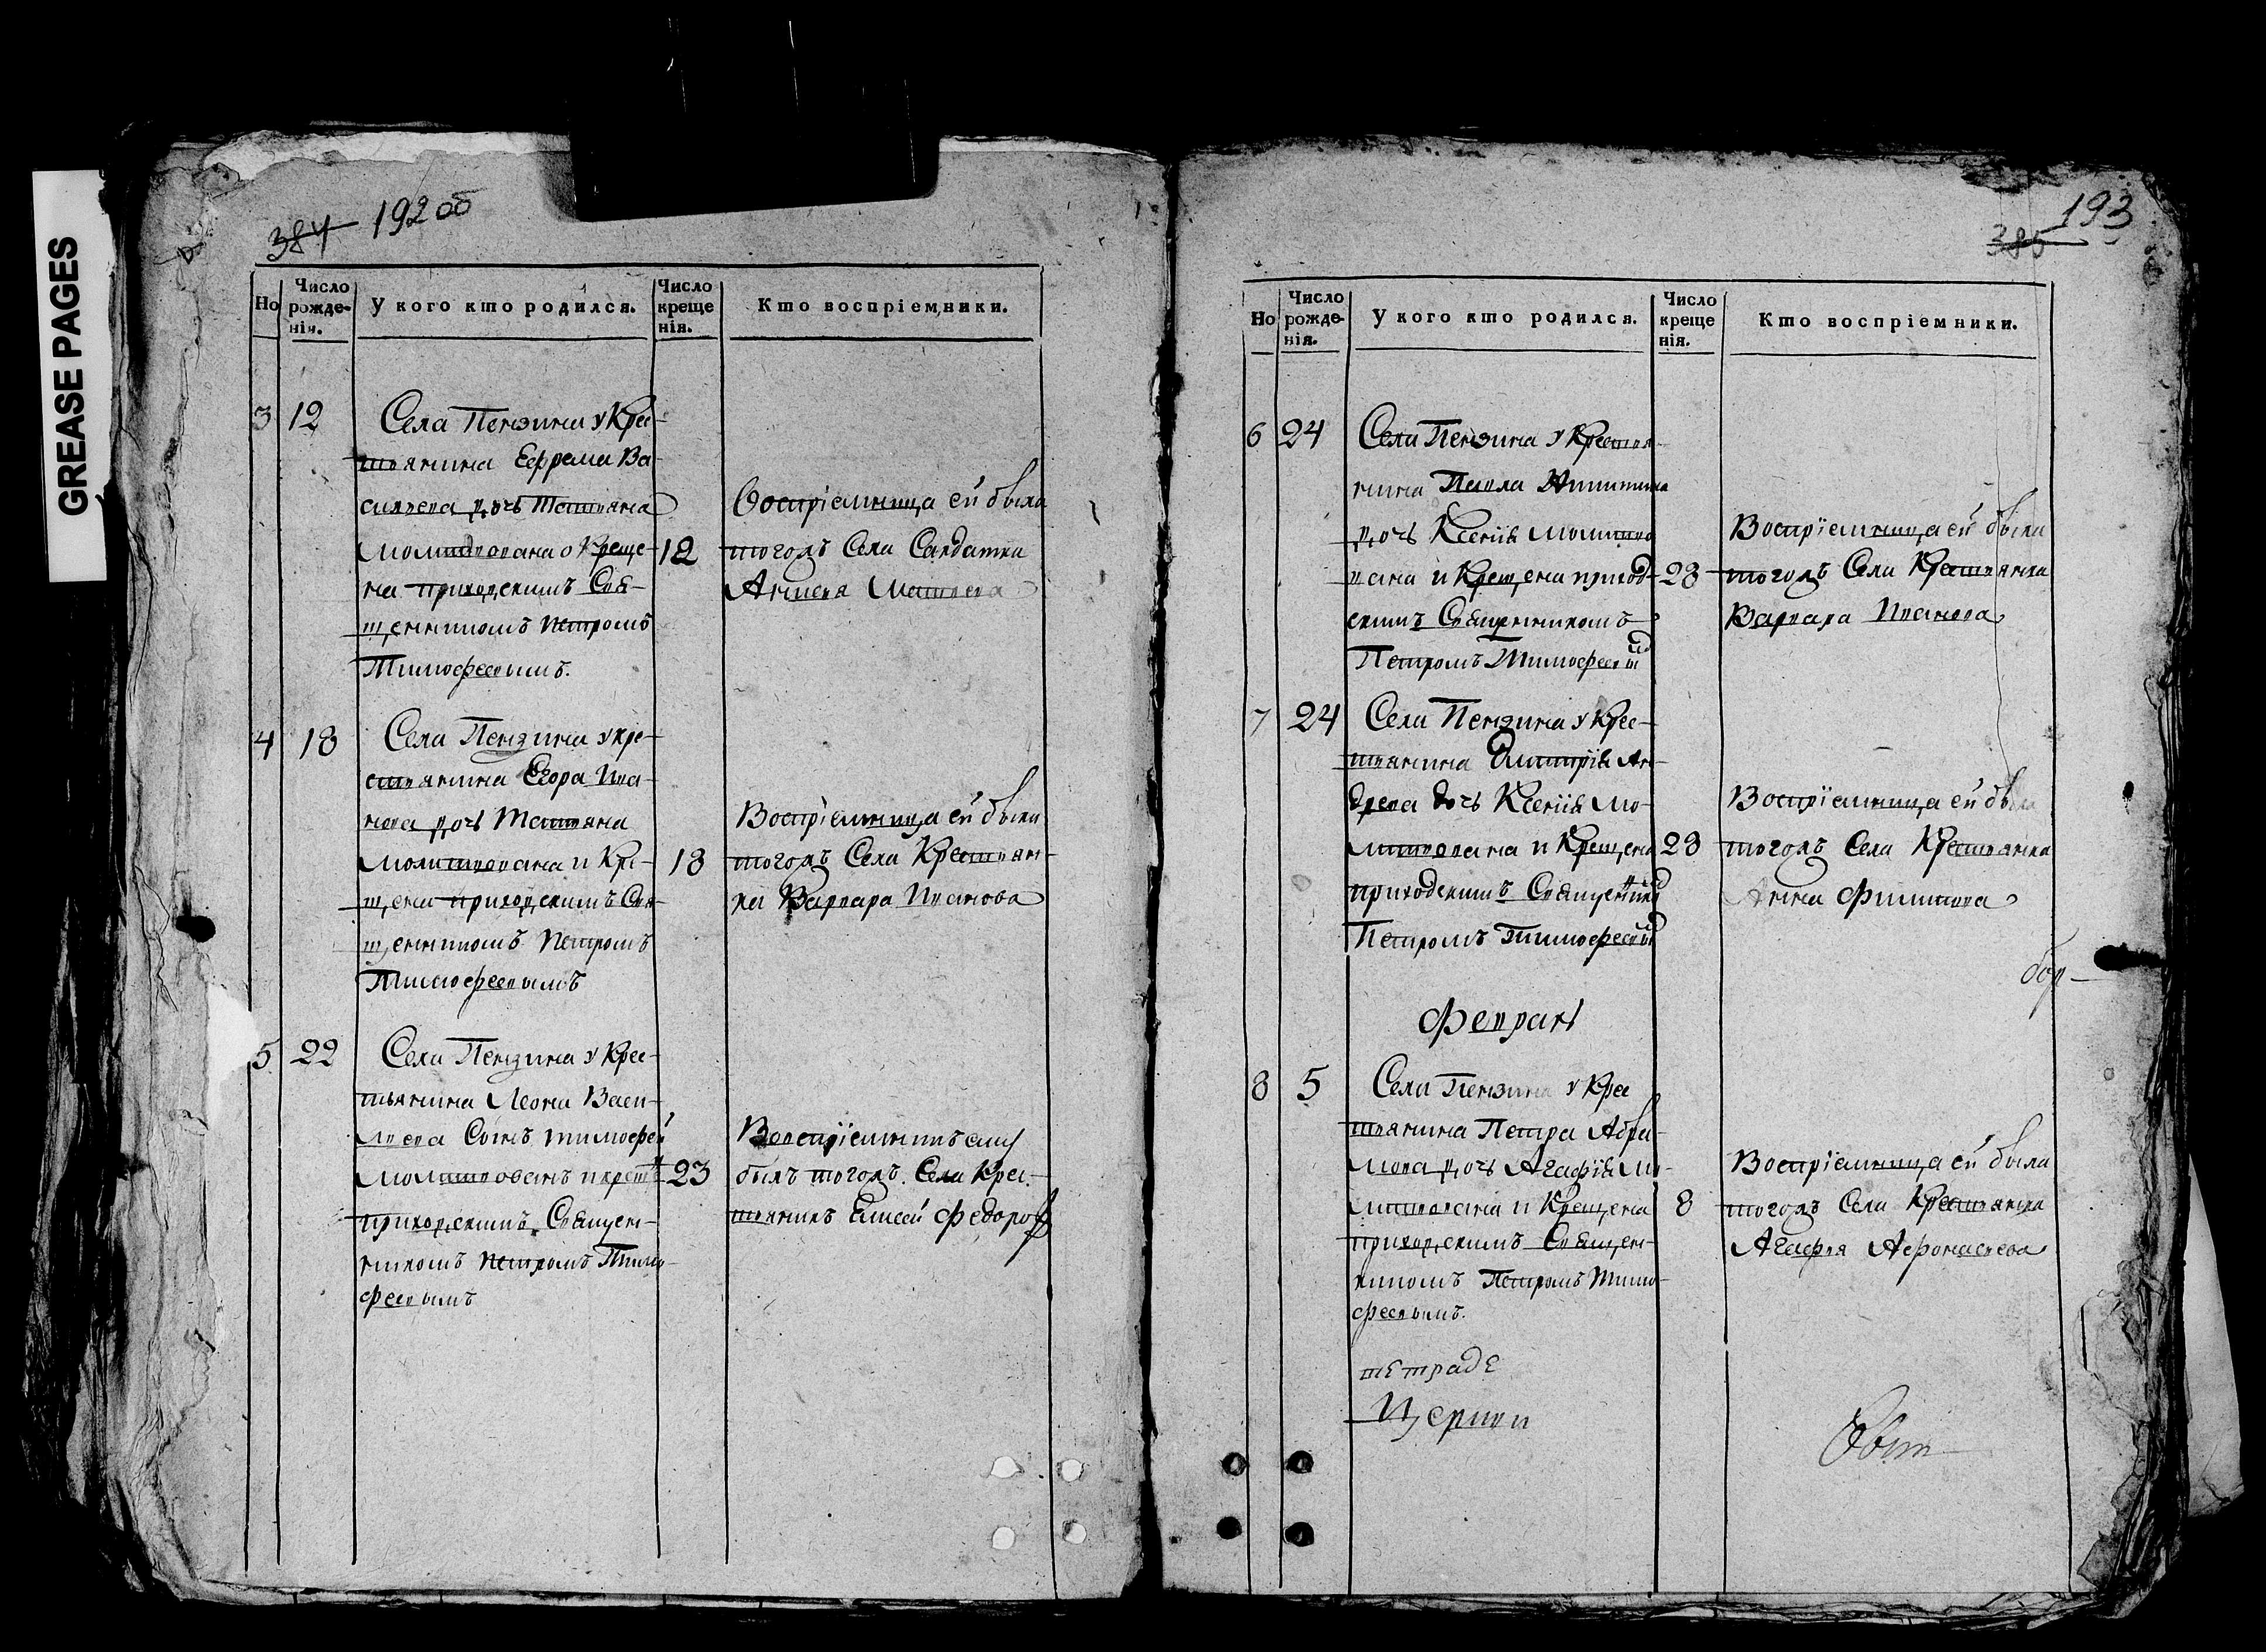 GREASE PAGES
384 192 об
Но
Число рожде-нія.
У кого кто родился.
Число креще нія.
Кто воспріемники.
3 12
Села Пензина у Крес-
тьянина Ефрема Ва
сильева дочь Татьяна
молитвована и Креще-
на приходскимъ Свя-
щенникомъ Петромъ
Тимофеевымъ.
12
Воспріемница ей была
тогожъ Села Салдатка
Матвева
4 18
Села Пензина у кре-
стьянина Егора Ива-
нова дочь Татьяна
молитвована и Кре-
щена приходскимъ Свя-
щенникомъ Петромъ
Тимофеевымъ
18
Воспріемница ей была
тогожъ Села Крестьян-
ка Варвара Иванова
5 22
Села Пензина у Крес-
тьянина Леона Васи-
льева Сынъ тимофей
молитвованъ и крещ
приходскимъ Священ-
никомъ Петромъ Тимо-
феевымъ
23
Воспріемникъ ему
былъ тогожъ Села Крес-
тьянинъ Елисей Федоров
193
385
Но
Число рожде-нія.
У кого кто родился.
Число креще нія.
Кто воспріемники.
6 24
Села Пензина у Крестья-
нина Павла Никитина
дочь Ксенія молитво
вана и Крещена приход-
скимъ Священникомъ
Петромъ Тимофеевы
28
Воспріемница ей была
тогожъ Села Крестьянка
Варвара Иванова
7 24
Села Пензина у Крес-
тьянина Дмитрія Ан-
дреева дочь Ксенія мо-
литвована и Крещена
приходскимъ Священник
Петромъ тимофеевы
28
Воспріемница ей была
тогожъ Села Крестьянка
Анна Филипова
бор-
Февраль
8 5
Села Пензина у Крес
тьянина Петра Абра-
мова дочь Агафія мо-
литвована и Крещена
приходскимъ Священ-
никомъ Петромъ Тимо-
феевымъ.
8
Воспріемница ей была
тогожъ Села Крестьянка
Агафья Афонасьева
тетраде
Церкви